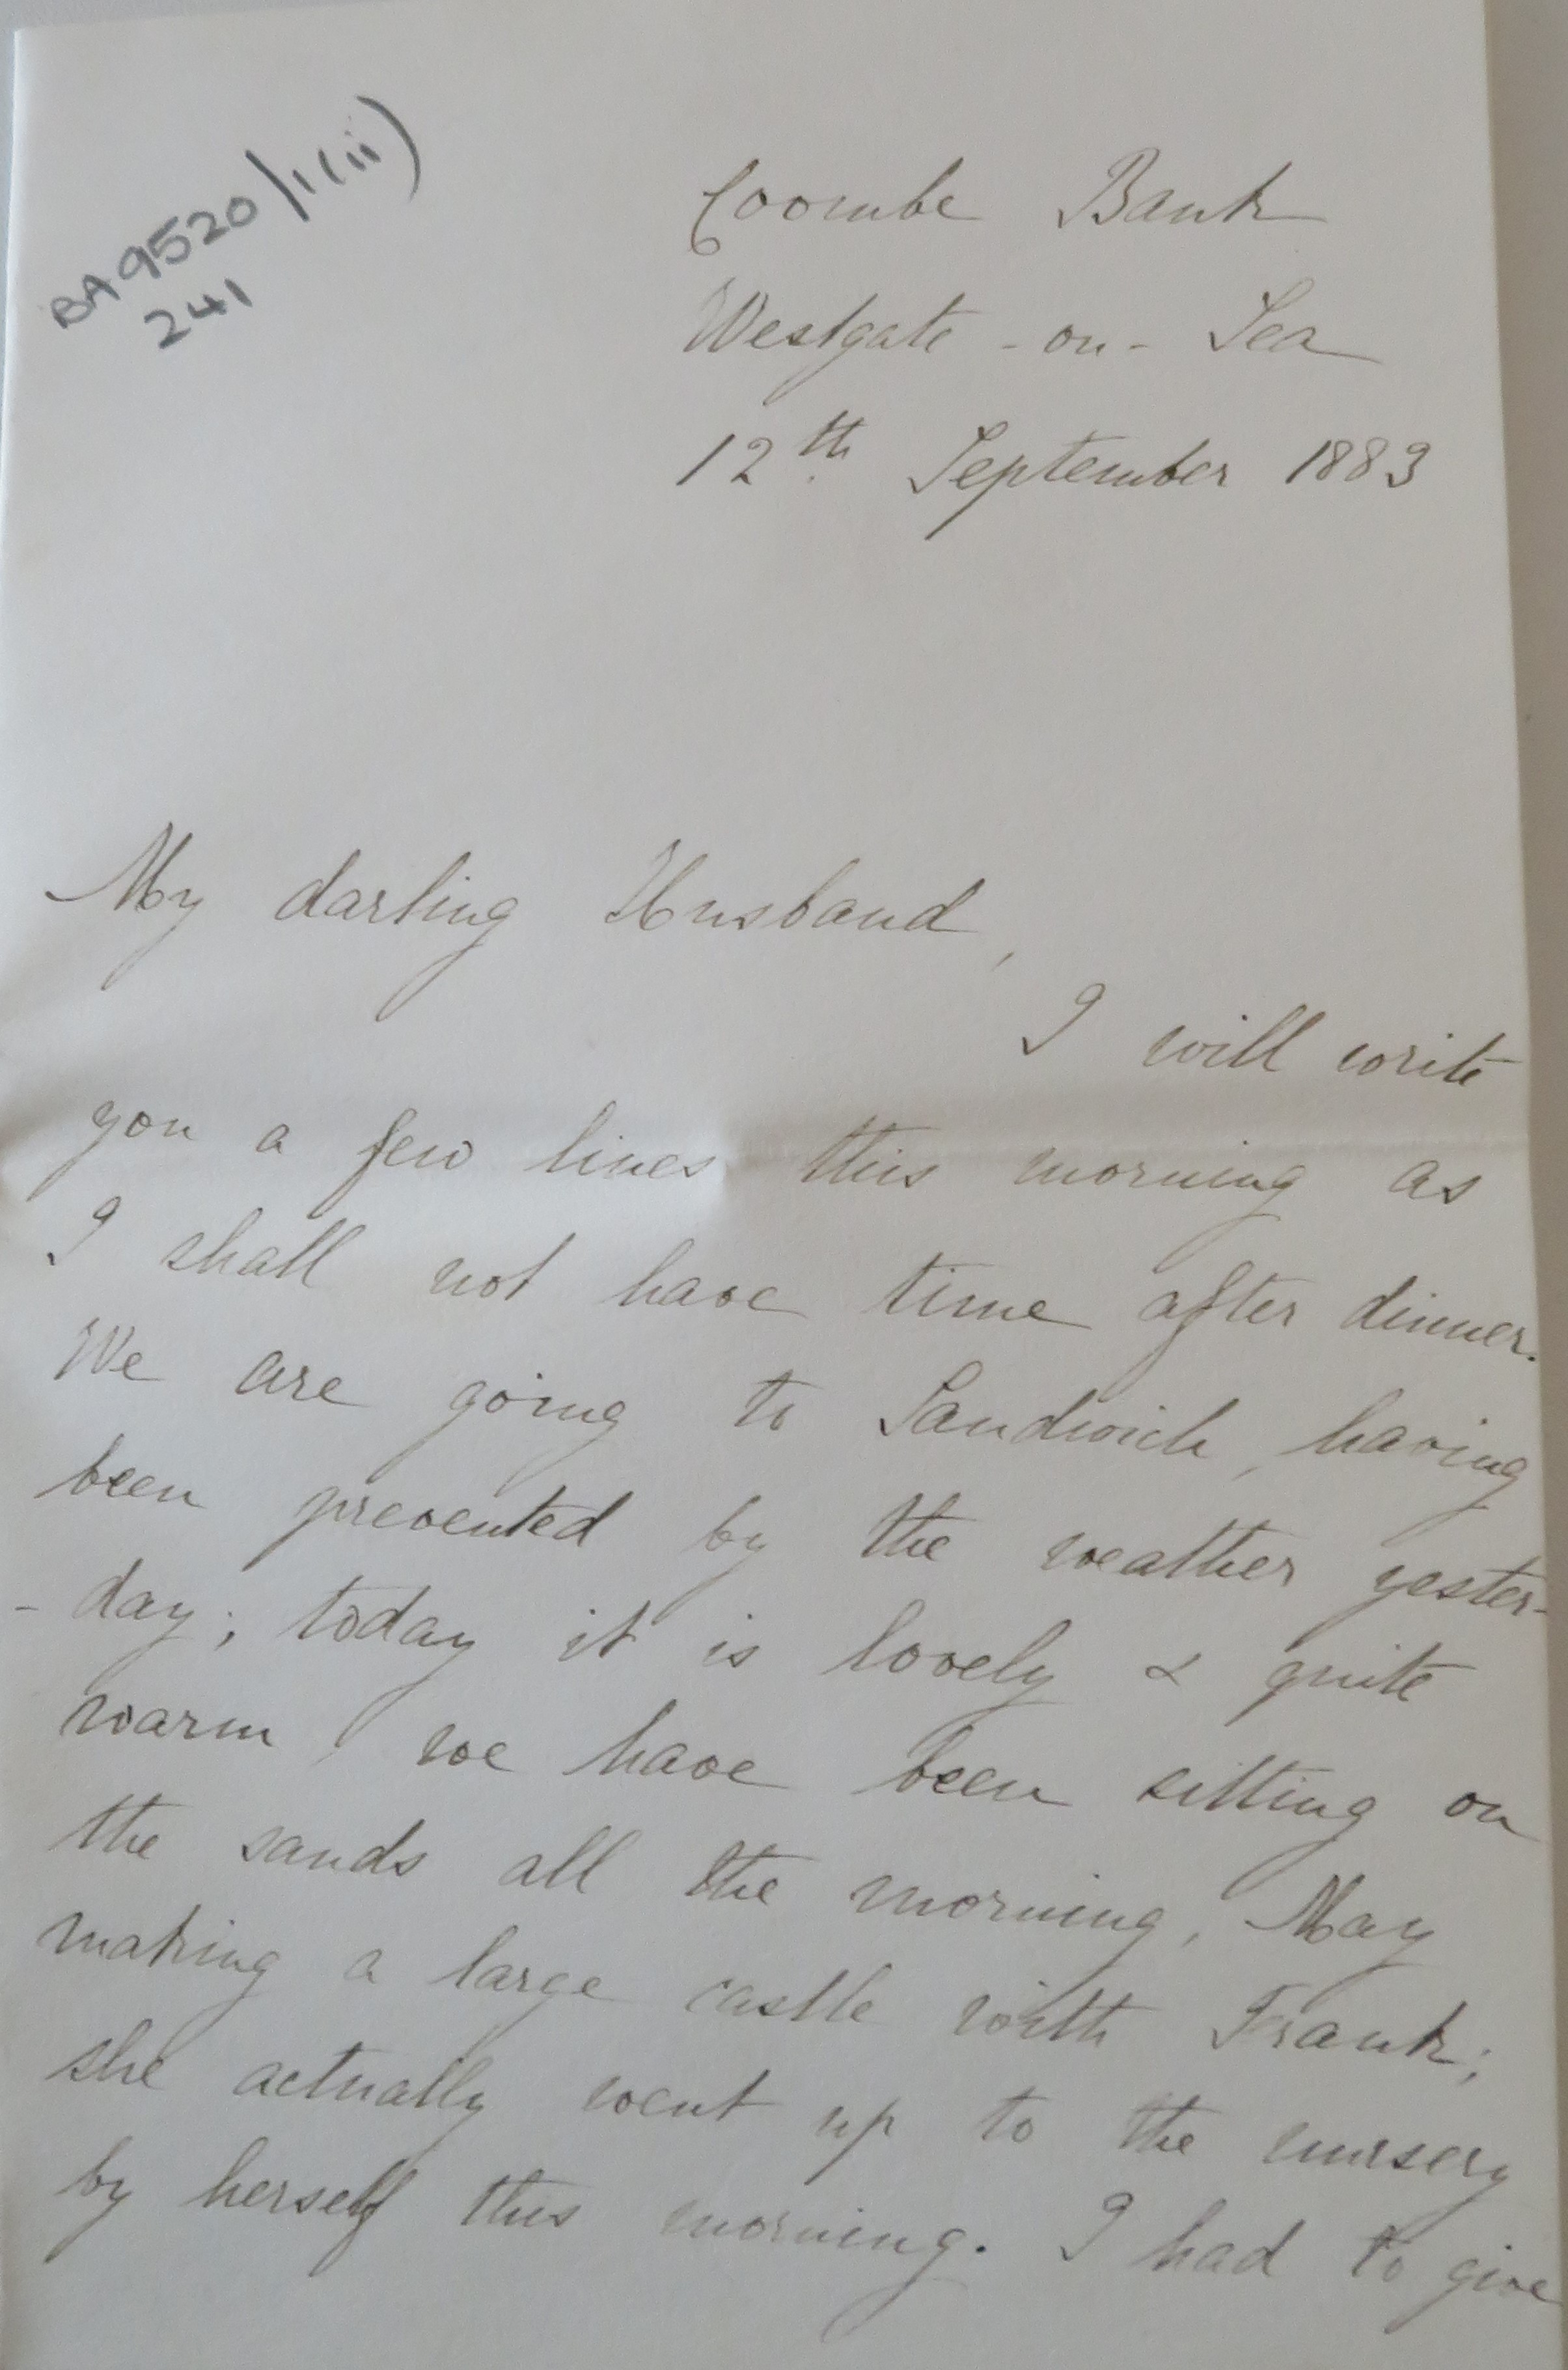 BA9520/1(ii)
241
Coombe Bank
Westgate-on-Sea
12th September 1883
My darling Husband,
I will write
you a few lines this morning as
I shall not have time after dinner.
We are going to Sandwich, having
been prevented by the weather yester-
-day; today it is lovely & quite
warm, we have been sitting on
the sands all the morning, May
making a large castle with Frank;
she actually went up to the nursery
by herself this morning. I had to give